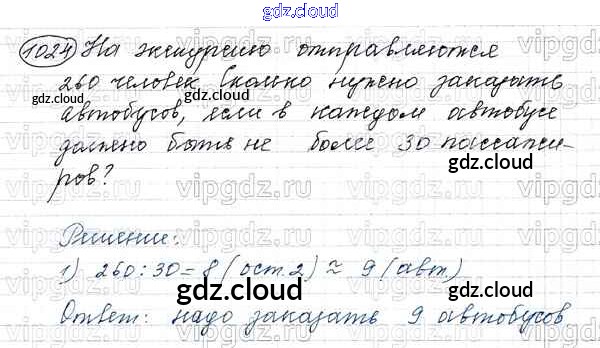 gdz.cloud
1024 На экскурсию отправляются
260 человек. Сколько нужно заказать
автобусов, если в каждом автобусе
должно быть не более 30 пассажи-
ров?
Решение:
1) 260 : 30 = 8 (ост. 2) ≈ 9 (авт)
Ответ: надо заказать 9 автобусов